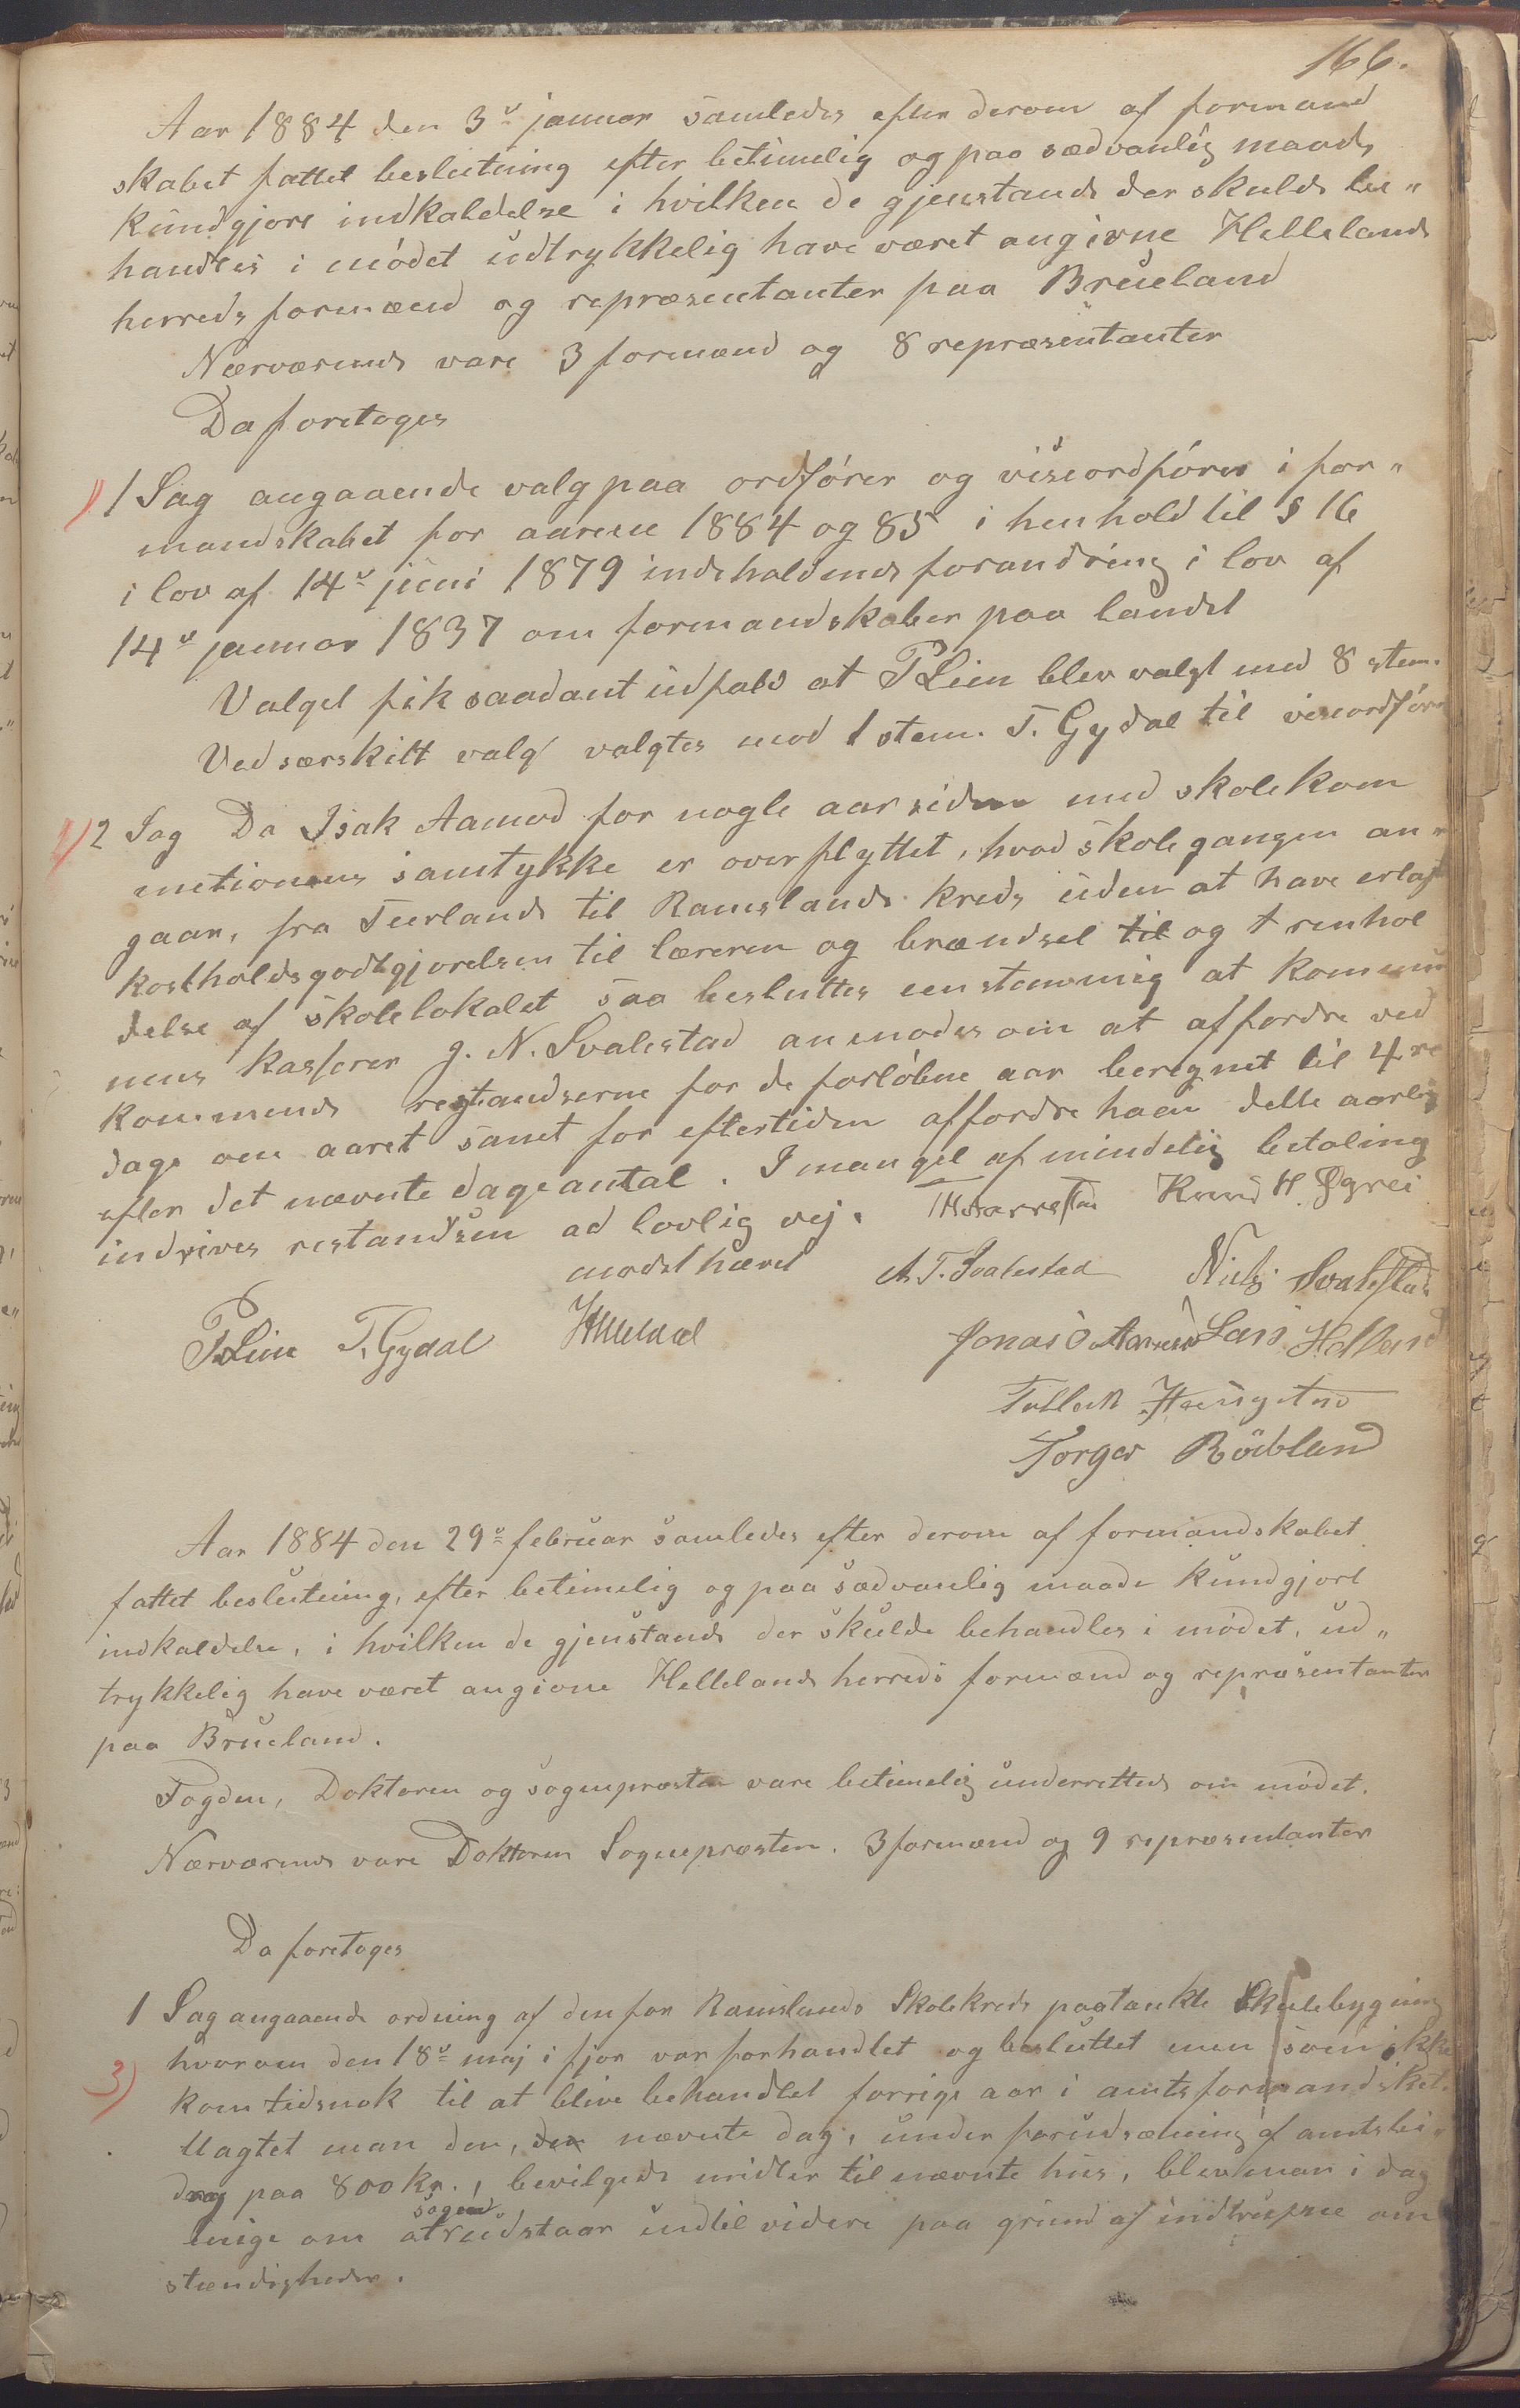 166.
Aar 1884 den 3die januar samledes efter derom af formand
skabet fattet beslutning efter betimelig og paa sædvanlig maade
kundgjort indkaldelse i hvilken de gjenstande der skulde be„
handles i mødet udtrykkelig have været angivne Hellelands
herreds formænd og repræsentanter paa Brueland
Nærværende vare 3 formænd og 8 repræsentanter
Da foretoges
1) 1 Sag angaaende valg paa ordfører og viseordfører i for„
mandskabet for aarene 1884 og 85 i henhold til § 16
i lov af 14de juni 1879 indeholdende forandring i lov af
14de januar 1837 om formandskaber paa landet
Valget fik saadant udfald at P Lim blev valgt med 8 stem.
Ved særskilt valg valgtes med 1 stem. T. Gydal til viseordfører
2) 2 Sag Da Isak Aamod for nogle aar siden med skolekom
metionens samtykke er overflyttet, hvad skolegangen an„
gaar, fra Terlands til Ramslands kreds uden at have erlagt
kostholdsgodtgjørelsen til læreren og brændsel til og t renhol
delse af skolelokalet saa besluttes eenstemmig at kommu
nens kasserer J. N. Svalestad anmodes om at affordre ved
kommende restandserne for de forløbne aar beregnet til 4re
dage om aaret samt for eftertiden affordre ham dette aarlig
efter det nævnte dageantal. I mangel af mindelig betaling
indrives restandsen ad lovlig vej.
mødet hævet
Knud H. Øgrei
A. T. Svalestad Niels Svalestad
P Lim T. Gydal
Jonas O Aarrestad Lars Helland
Tollak Haugstad
Torger Røubland
Aar 1884 den 29de februar samledes efter derom af formandskabet
fattet beslutning, efter betimelig og paa sædvanlig maade kundgjort
indkaldelse, i hvilken de gjenstande der skulde behandles i mødet, ud„
trykkelig have været angivne Hellelands herreds formænd og repræsentanter
paa Brueland.
Fogden, Doktoren og sognepræsten vare betimelig underrettede om mødet.
Nærværende vare Doktoren Sognepræsten. 3 formænd og 9 repræsentanter
Da foretoges
1 Sag angaaende ordning af den for Ramslands Skolekreds paatænkte Skolebygning
3) hvorom den 18de maj i fjor var forhandlet og besluttet men som ikke
kom tidsnok til at blive behandlet forrige aar i amtsformandsket.
Uagtet man den, den nævnte dag, under forudsætning af amtsbi„
drag paa 800 kr., bevilgede midler til nævnte hus, blev man i dag
enige om at sagen udstaar indtil videre paa grund af indtrufne om
stændigheder.